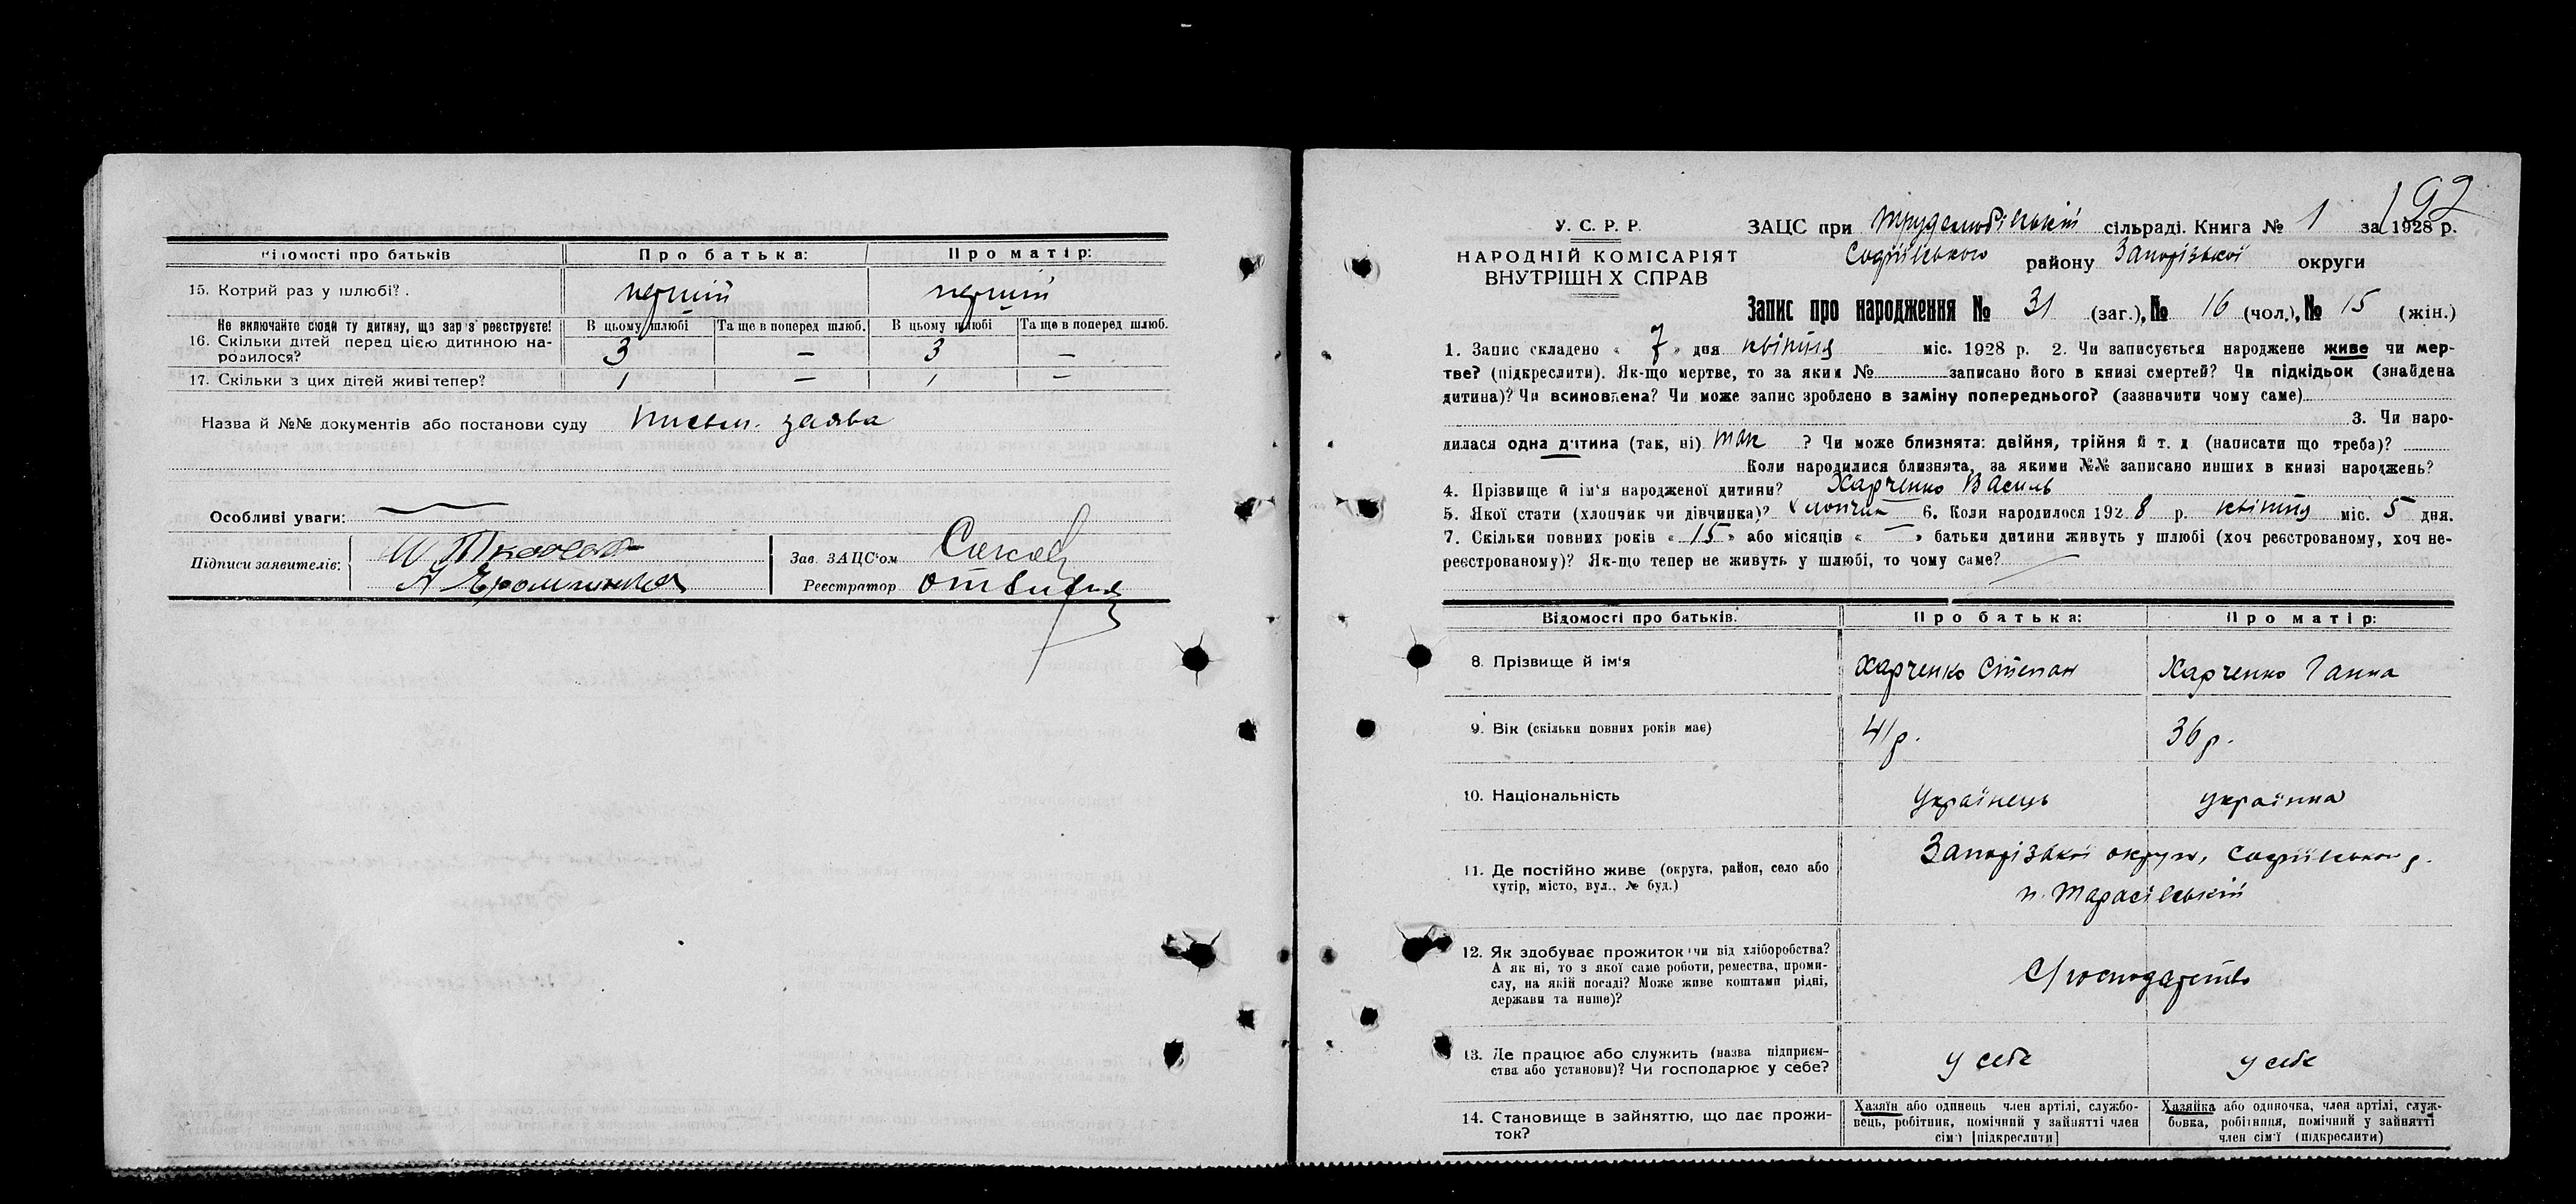 Відомості про батьків
Про батька:
Про матір:
15. Котрий раз у шлюбі?
перший
перший
Не включайте сюди ту дитину, що зараз реєструєте!
16. Скільки дітей перед цією дитиною на-
родилося?
В цьому шлюбі
Та ще в поперед шлюб.
В цьому шлюбі
Та ще в поперед шлюб.
3
—
3
—
17. Скільки з цих дітей живі тепер?
1
—
1
—
Назва й №№ документів або постанови суду
заява
Особливі уваги:
Підписи заявителів:
Зав. ЗАЦС'ом
Реєстратор
192
У. С. Р. Р.
НАРОДНІЙ КОМІСАРІЯТ
ВНУТРІШН Х СПРАВ
ЗАЦС при Трудолюбівській сільраді. Книга № 1 за 1928 р.
Софіївського району Запорізької округи
Запис про народження № 31 (заг.), № 16 (чол.), № 15 (жін.)
1. Запис складено « 7 » дня квітня міс. 1928 р. 2. Чи записується народжене живе чи мер-
тве? (підкреслити). Як-що мертве, то за яким № записано його в книзі смертей? Чи підкідьок (знайдена
дитина)? Чи всиновлена? Чи може запис зроблено в заміну попереднього? (зазначити чому саме)
3. Чи наро-
дилася одна дитина (так, ні) так ? Чи може близнята: двійня, трійня й т. д (написати що треба)?
Коли народилися близнята, за якими №№ записано инших в книзі народжень?
4. Прізвище й ім'я народженої дитини? Харченко Василь
5. Якої стати (хлопчик чи дівчинка)? Хлопчик 6. Коли народилося 1928 р. квітня міс. 5 дня.
7. Скільки повних років « 15 » або місяців « — » батьки дитини живуть у шлюбі (хоч реєстрованому, хоч не-
реєстрованому)? Як-що тепер не живуть у шлюбі, то чому саме?
Відомості про батьків:
Про батька:
Про матір:
8. Прізвище й ім'я
Харченко Степан
Харченко Ганна
9. Вік (скільки повних років має)
41 р.
36 р.
10. Національність
Українець
українка
11. Де постійно живе (округа, район, село або
хутір, місто, вул., № буд.)
Запорізької округи, Софіївського р.
п. Тарасівській
12. Як здобуває прожиток чи від хліборобства?
А як ні, то з якої саме роботи, ремества, проми-
слу, на якій посаді? Може живе коштами рідні,
держави та инше)?
С/господарство
13. Де працює або служить (назва підприєм-
ства або установи)? Чи господарює у себе?
у себе
у себе
14. Становище в зайняттю, що дає прожи-
ток?
Хазяїн або одинець член артілі, службо-
вець, робітник, помічний у зайнятті член
сім'ї [підкреслити]
Хазяйка або одиночка, член артілі, служ-
бовка, робітниця, помічний у зайнятті
член сім'ї (підкреслити)